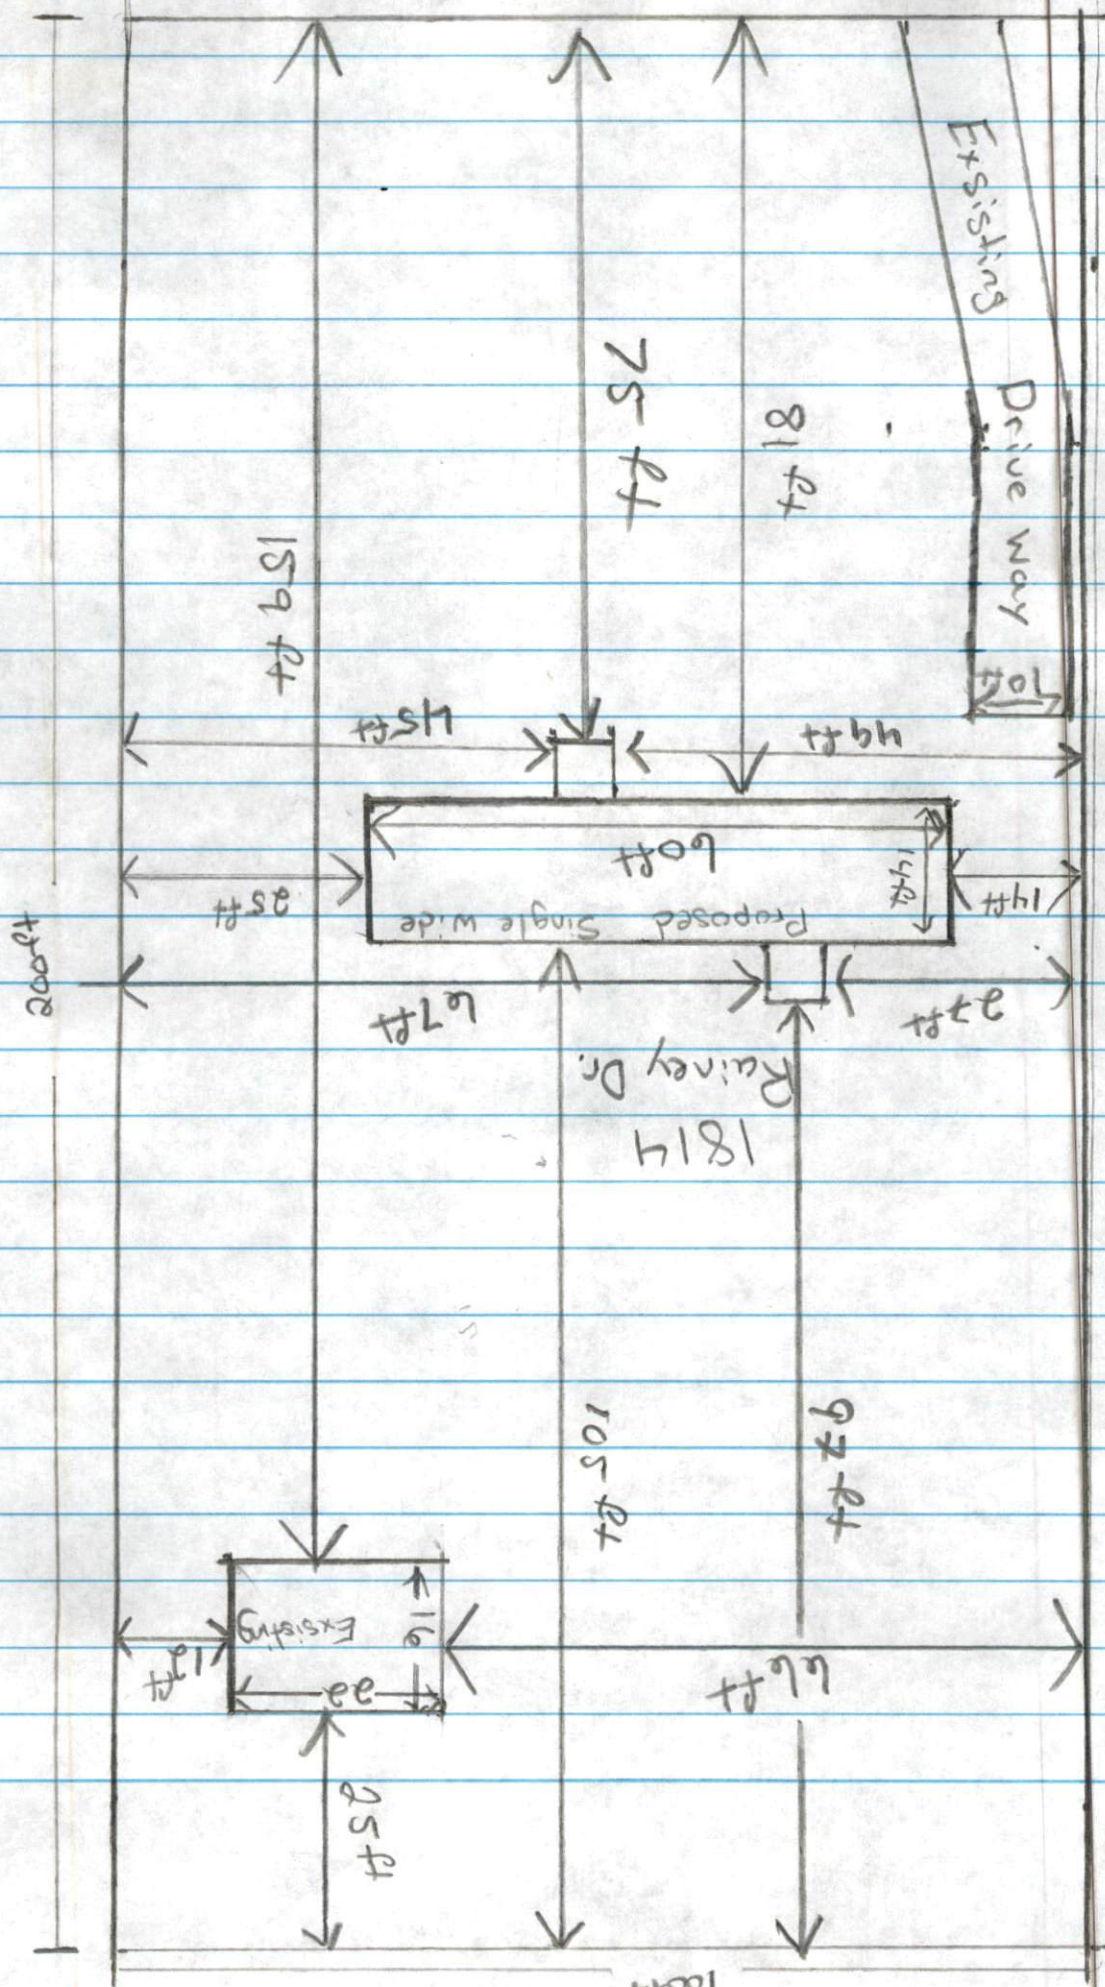 Exsisting
Drive Way
10ft
75 ft
81 ft
159 ft
45ft
49ft
60ft
14ft
25ft
14ft
Proposed Single Wide
200ft
67ft
27ft
Rainey Dr.
1814
105 ft
97 ft
Exsisting
16
22
12ft
66ft
25ft